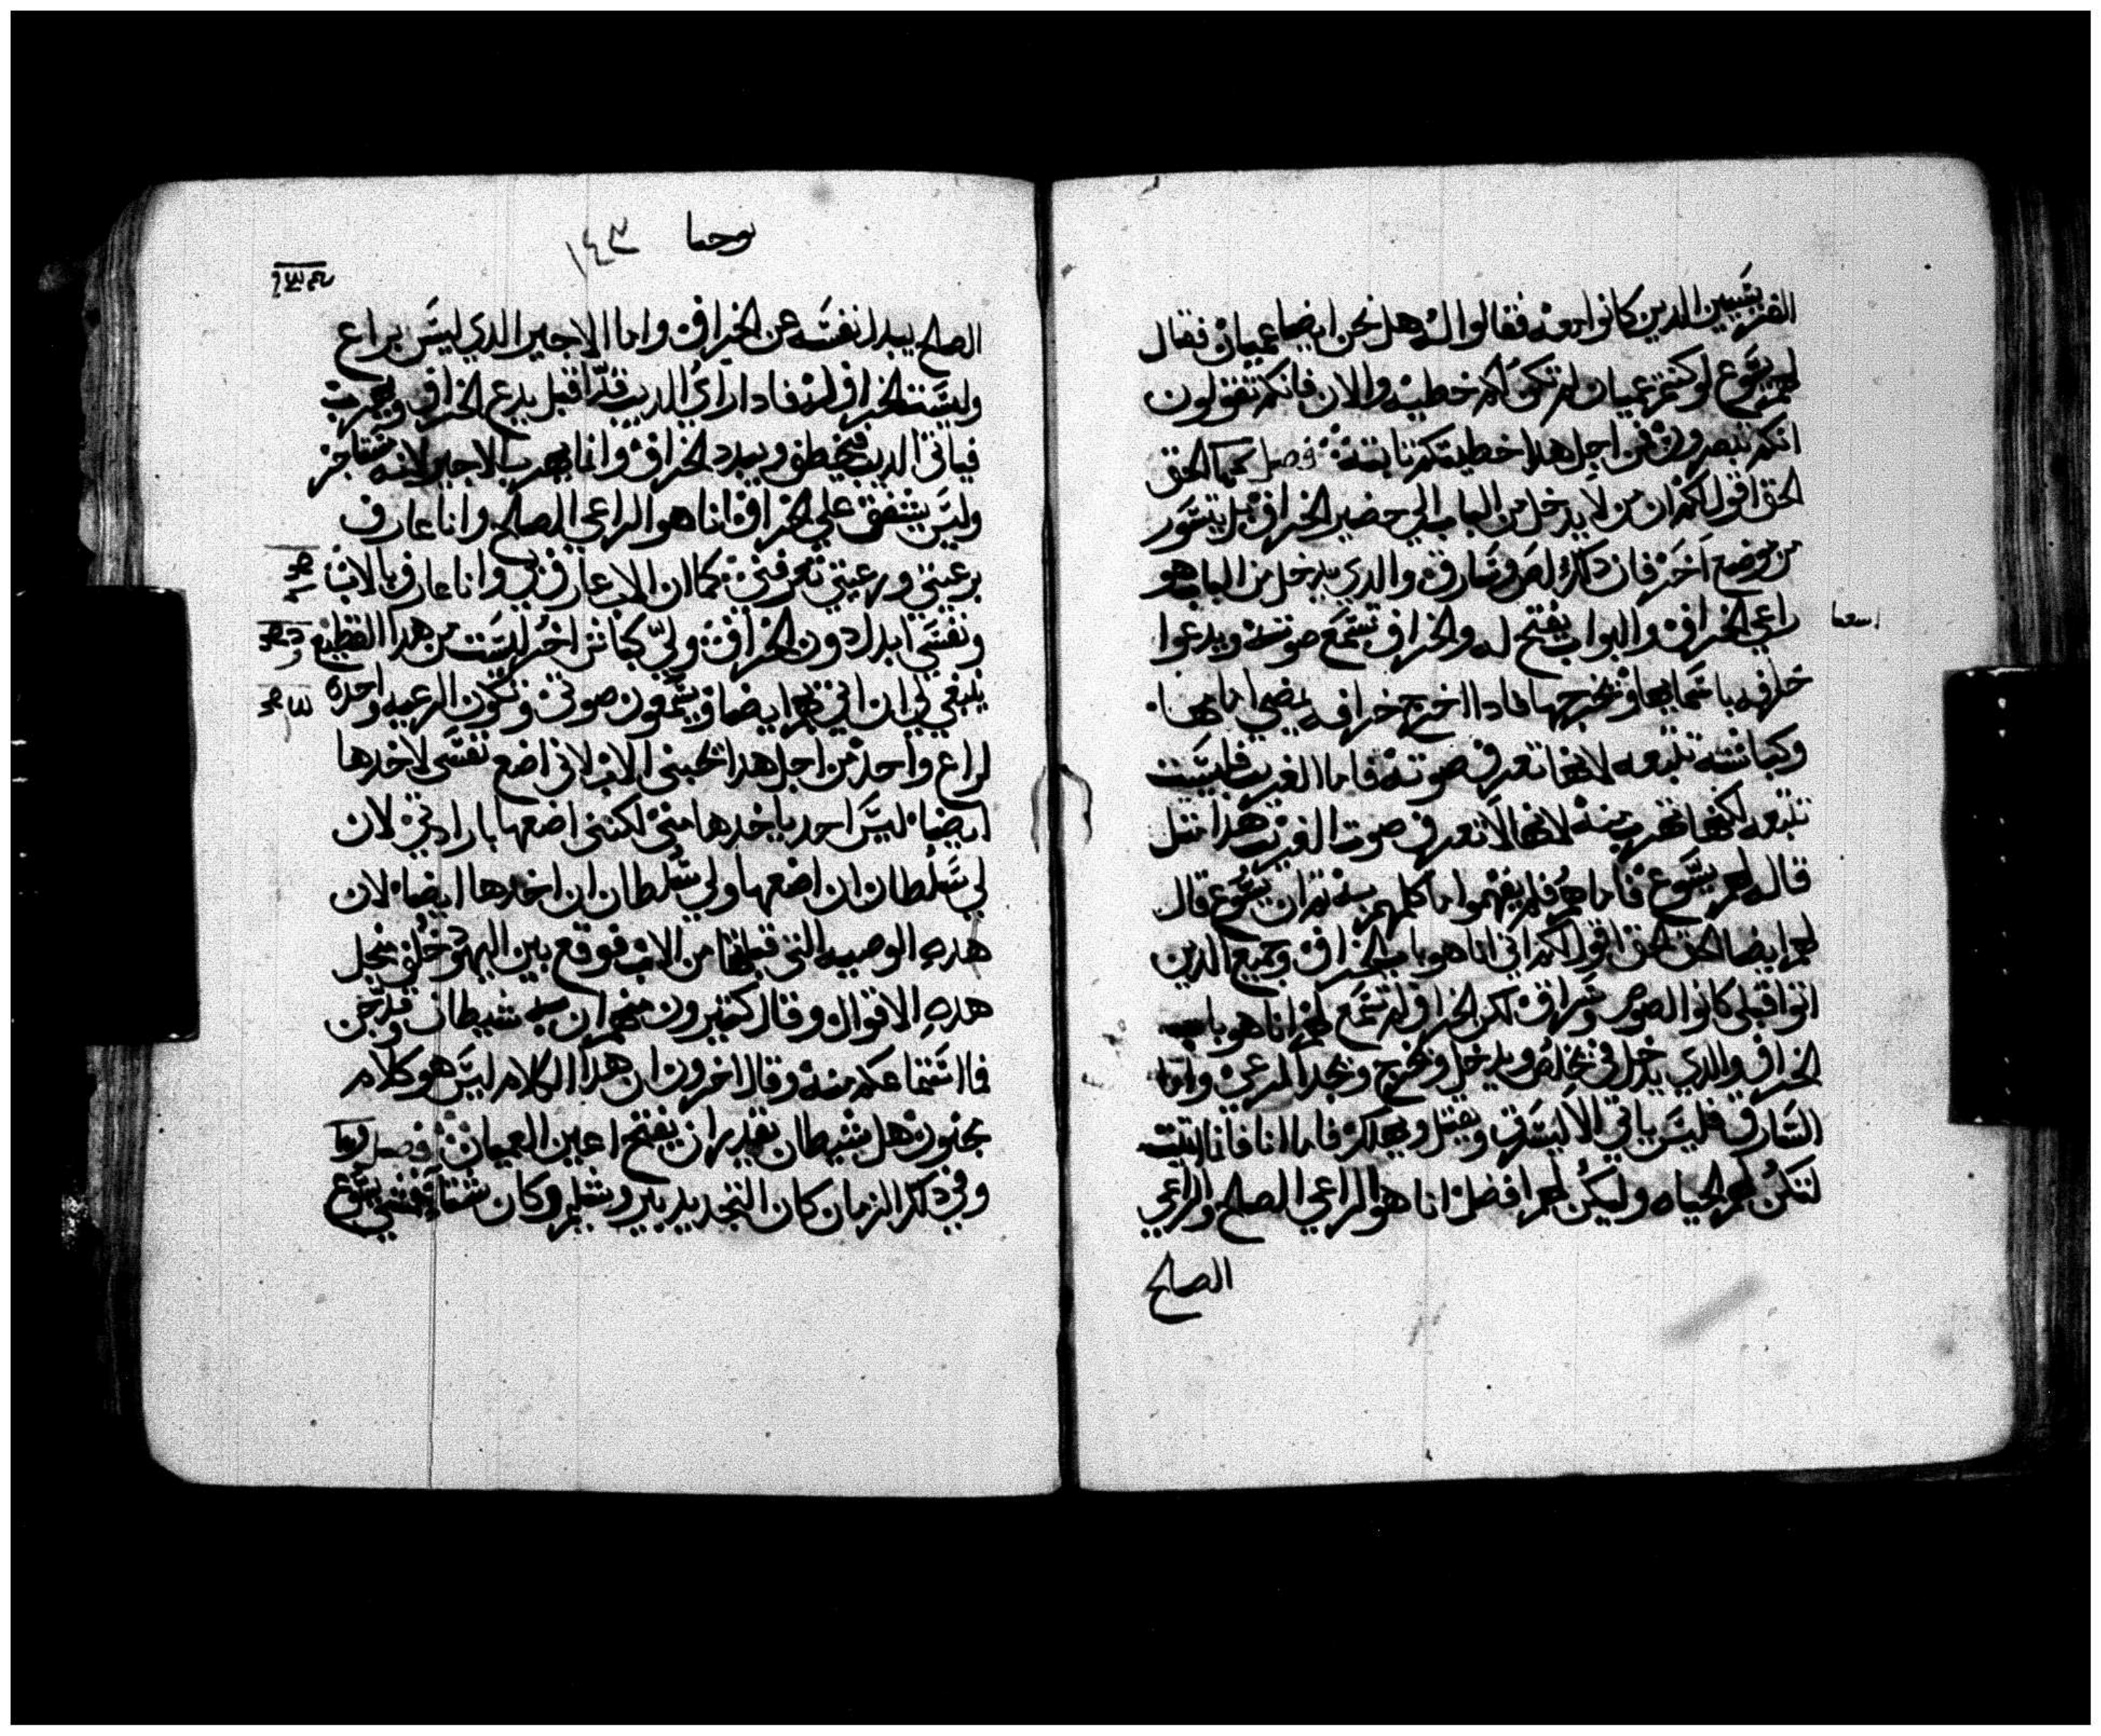 الفريسيين الدين كانوا معه فقالوا له هل نحن ايضا عميان فقال
لهم يسوع لو كنتم عميان لم تكن لكم خطيه والان فانكم تقولون
انكم تبصرون فمن اجل هدا خطيتكم تابته فصل الحق
الحق اقول لكم ان من لا يدخل من الباب الي حضير الخراف بل يتسور
من موضع اخر فان داك لص وسارق والدي يدخل من الباب هو
راعي الخراف والبواب يفتح له والخراف تسمع صوته ويدعوا
خرافه باسمايها ويخرجها فادا اخرج خرافه يمضي امامها
وكباشه تتبعه لانها تعرف صوته فاما الغريب فليست
تتبعه لكنها تهرب منه لانها لا تعرف صوت الغريب هدا متل
قاله لهم يسوع فاما هم فلم يفهموا ما كلمهم به تم ان يسوع قال
لهم ايضا الحق الحق اقول لكم اني انا هو باب الخراف وجميع الدين
اتوا قبلي كانوا لصوص وسراق لكن الخراف لم تسمع لهم انا هو باب
الخراف والدي يدخل في يخلص ويدخل ويخرج ويجد المرعي واما
السارق فليس ياتي الا ليسرق ويقتل ويهلك فاما انا فانا اتيت
لتكن لهم الحياه وليكن لهم افضل انا هو الراعي الصالح والراعي
الصالح
يوحنا ١٤٣
الصالح يبدل نفسه عن الخراف واما الاجير الدي ليس براع
وليست الخراف له فادا راي الديب قد اقبل يدع الخراف ويهرب
فياتي الديب فيخطف ويبدد الخراف وانما يهرب الاجير لانه مستاجر
وليس يشفق علي الخراف انا هو الراعي الصالح وانا عارف
برعيتي ورعيتي تعرفني كما ان الاب عارف بي وانا عارف بالاب
ونفسي ابدل دون الخراف ولي كباش اخر ليست من هدا القطيع
ينبغي لي ان اتي بهم ايضا ويسمعون صوتي وتكون الرعيه واحده
لراع واحد من اجل هدا يحبني الاب لاني اضع نفسي لاخدها
ايضا ليس احد ياخدها مني لكنني اضعها بارادتي لان
لي سلطان ان اضعها ولي سلطان ان اخدها ايضا لان
هده الوصيه التي قبلتها من الاب فوقع بين اليهود خلف من اجل
هده الاقوال وقال كتيرون منهم ان به شيطان وقد جن
فما استماعكم منه وقال اخرون ان هدا الكلام ليس هو كلام
مجنون هل شيطان يقدر ان يفتح اعين العميان فصل
وفي دلك الزمان كان التجديد بيروشليم وكان شتاء فمشي يسوع